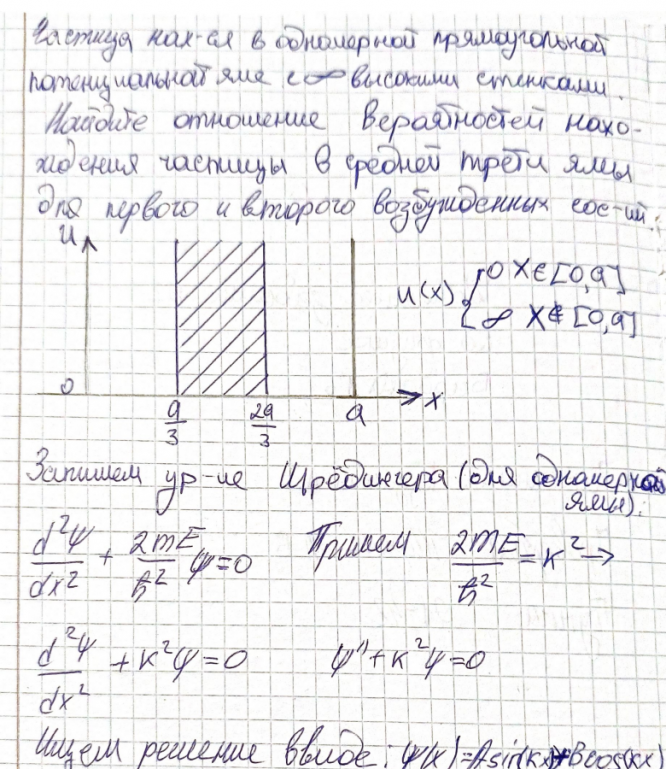 Частица нах-ся в одномерной прямоугольной
потенциальной яме с ∞ высокими стенками.
Найдите отношение вероятностей нахо-
ждения частицы в средней трети ямы
для первого и второго возбужденных сос-ий.
U
U(x) { 0 X∈[0,a]
∞ X∉[0,a]
0 a/3 2a/3 a x
Запишем ур-ие Шрёдингера (для одномерной
ямы):
d²ψ/dx² + 2mE/ħ² ψ=0 Примем 2mE/ħ² = k² →
d²ψ/dx² + k²ψ=0 ψ'' + k²ψ=0
Ищем решение ввиде: ψ(x)=Asin(kx)+Bcos(kx)